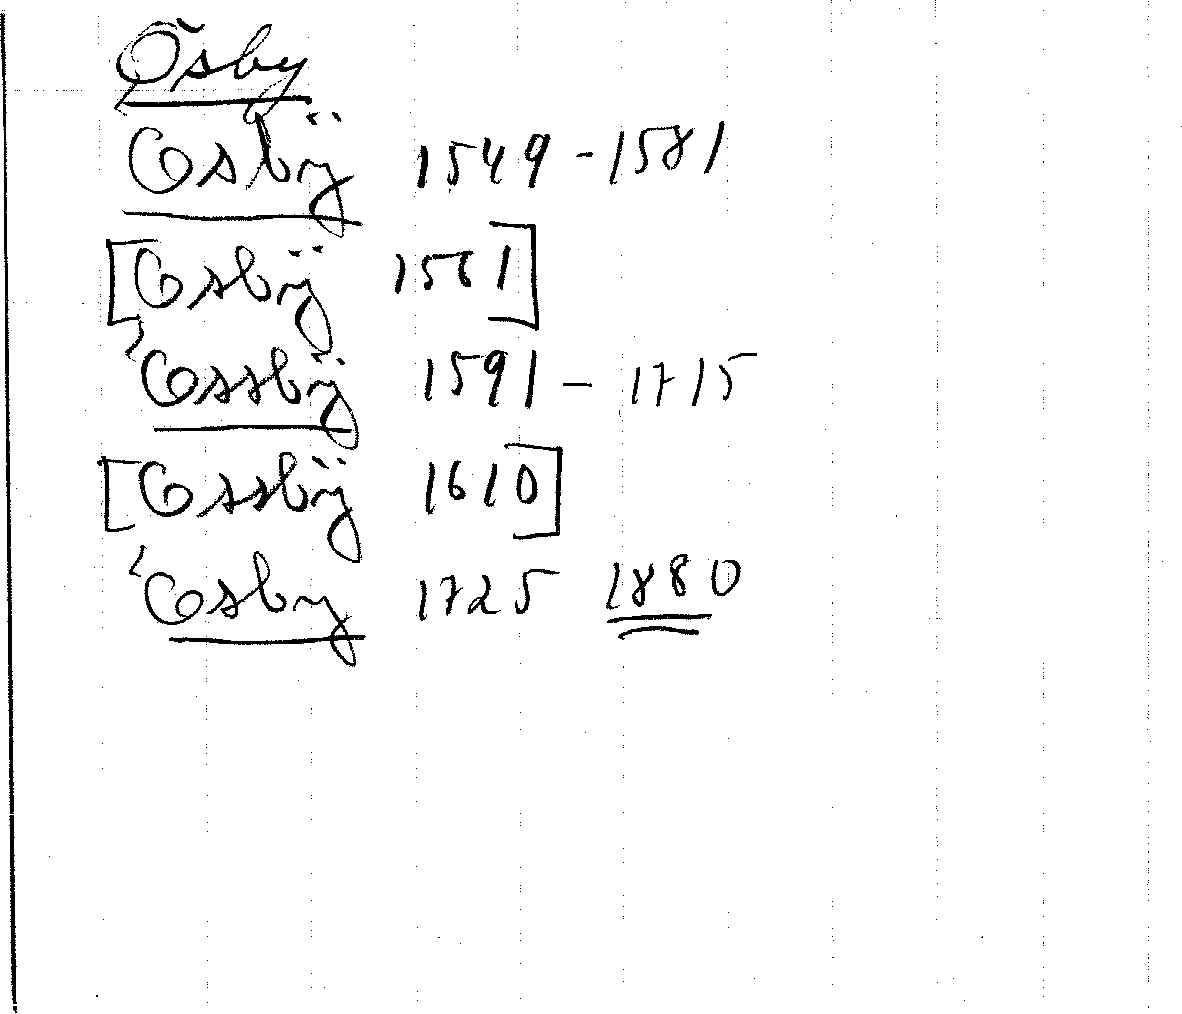 Ösby
Osbÿ 1549-1581
[Osbÿ 1561]
Ossbÿ 1591 - 1715
[Ossbÿ 1610]
Osby 1725 1880